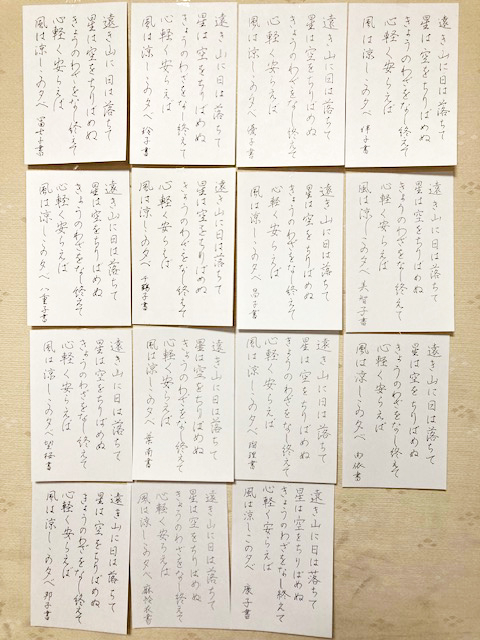 遠き山に日は落ちて
星は空をちりばめぬ
きょうのわざをなし終えて
心軽く安らえば
風は涼しこの夕べ 子書
遠き山に日は落ちて
星は空をちりばめぬ
きょうのわざをなし終えて
心軽く安らえば
風は涼しこの夕べ 優子書
遠き山に日は落ちて
星は空をちりばめぬ
きょうのわざをなし終えて
心軽く安らえば
風は涼しこの夕べ 玲子書
遠き山に日は落ちて
星は空をちりばめぬ
きょうのわざをなし終えて
心軽く安らえば
風は涼しこの夕べ 富士子書
遠き山に日は落ちて
星は空をちりばめぬ
きょうのわざをなし終えて
心軽く安らえば
風は涼しこの夕べ 美智子書
遠き山に日は落ちて
星は空をちりばめぬ
きょうのわざをなし終えて
心軽く安らえば
風は涼しこの夕べ 昌子書
遠き山に日は落ちて
星は空をちりばめぬ
きょうのわざをなし終えて
心軽く安らえば
風は涼しこの夕べ 千鶴子書
遠き山に日は落ちて
星は空をちりばめぬ
きょうのわざをなし終えて
心軽く安らえば
風は涼しこの夕べ 八重子書
遠き山に日は落ちて
星は空をちりばめぬ
きょうのわざをなし終えて
心軽く安らえば
風は涼しこの夕べ 由依書
遠き山に日は落ちて
星は空をちりばめぬ
きょうのわざをなし終えて
心軽く安らえば
風は涼しこの夕べ 瑠理書
遠き山に日は落ちて
星は空をちりばめぬ
きょうのわざをなし終えて
心軽く安らえば
風は涼しこの夕べ 葉南書
遠き山に日は落ちて
星は空をちりばめぬ
きょうのわざをなし終えて
心軽く安らえば
風は涼しこの夕べ 望桜書
遠き山に日は落ちて
星は空をちりばめぬ
きょうのわざをなし終えて
心軽く安らえば
風は涼しこの夕べ 康子書
遠き山に日は落ちて
星は空をちりばめぬ
きょうのわざをなし終えて
心軽く安らえば
風は涼しこの夕べ 麻紗衣書
遠き山に日は落ちて
星は空をちりばめぬ
きょうのわざをなし終えて
心軽く安らえば
風は涼しこの夕べ 邦子書